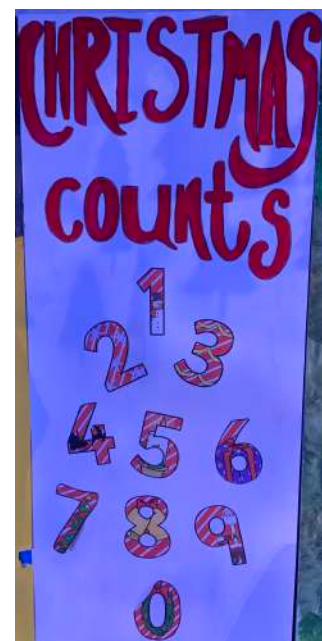 CHRISTMAS
counts
1
2 3
4 5 6
7 8 9
0